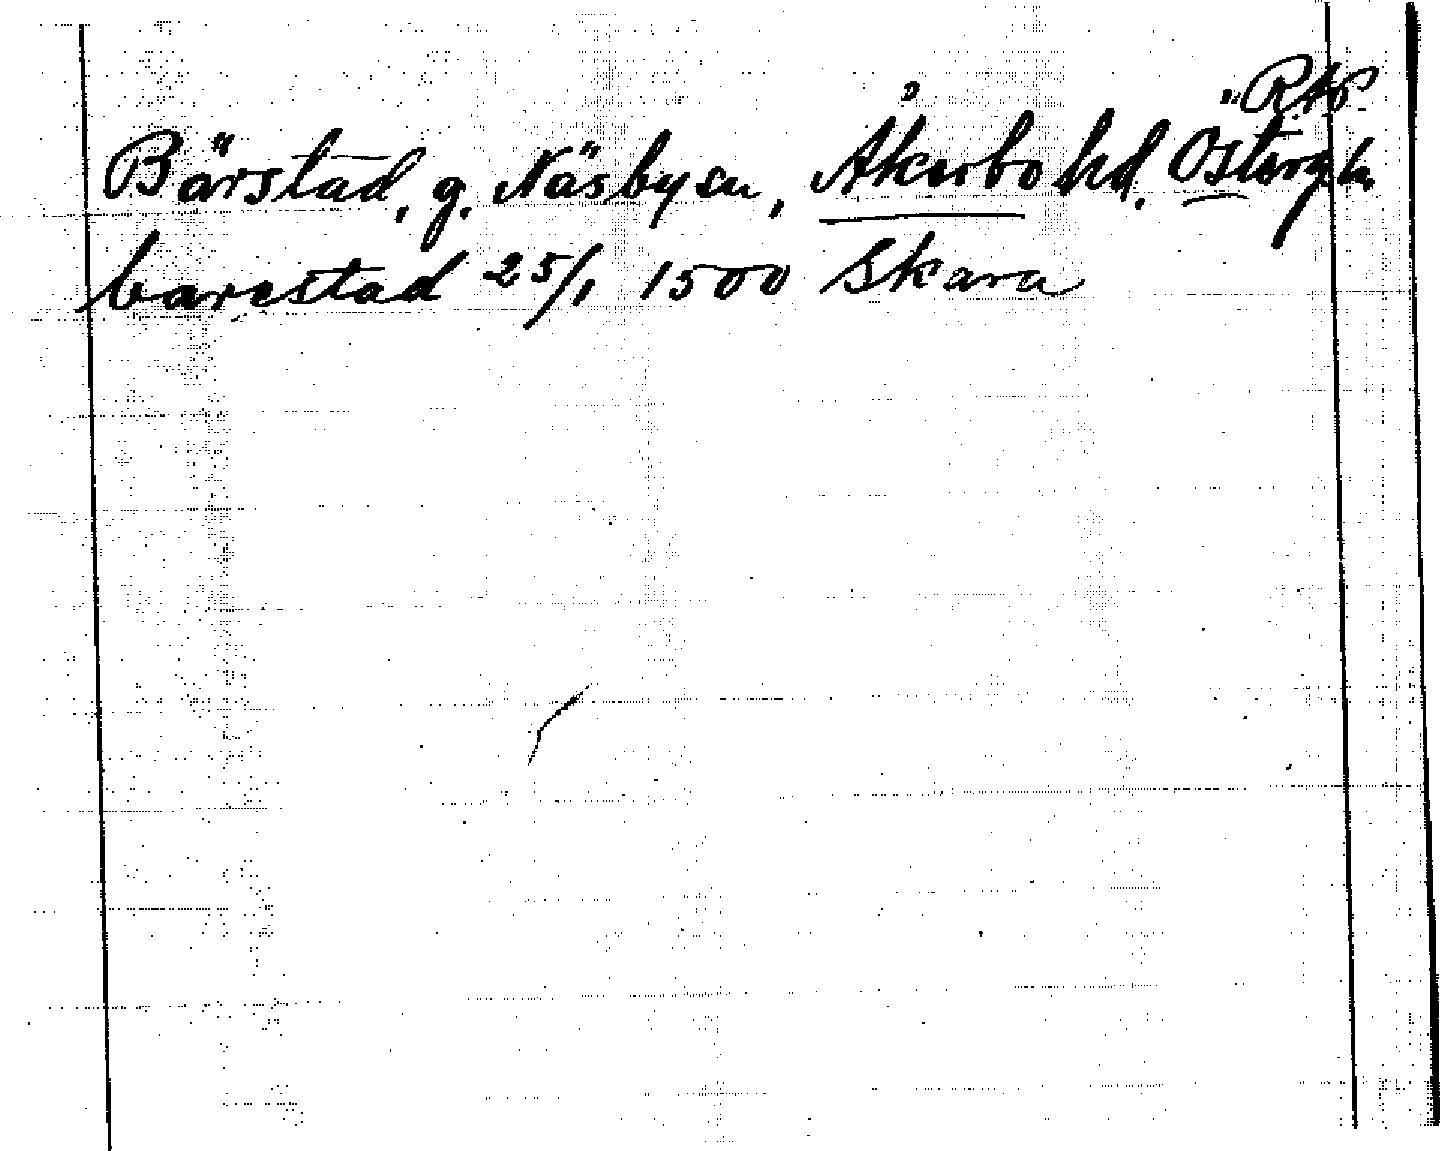 RAP
Bärstad, g. Näsby sn, Åkerbo hd. Östergh.
barestad 25/1 1500 Skara